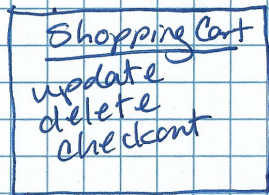 Shopping Cart
update
delete
checkout